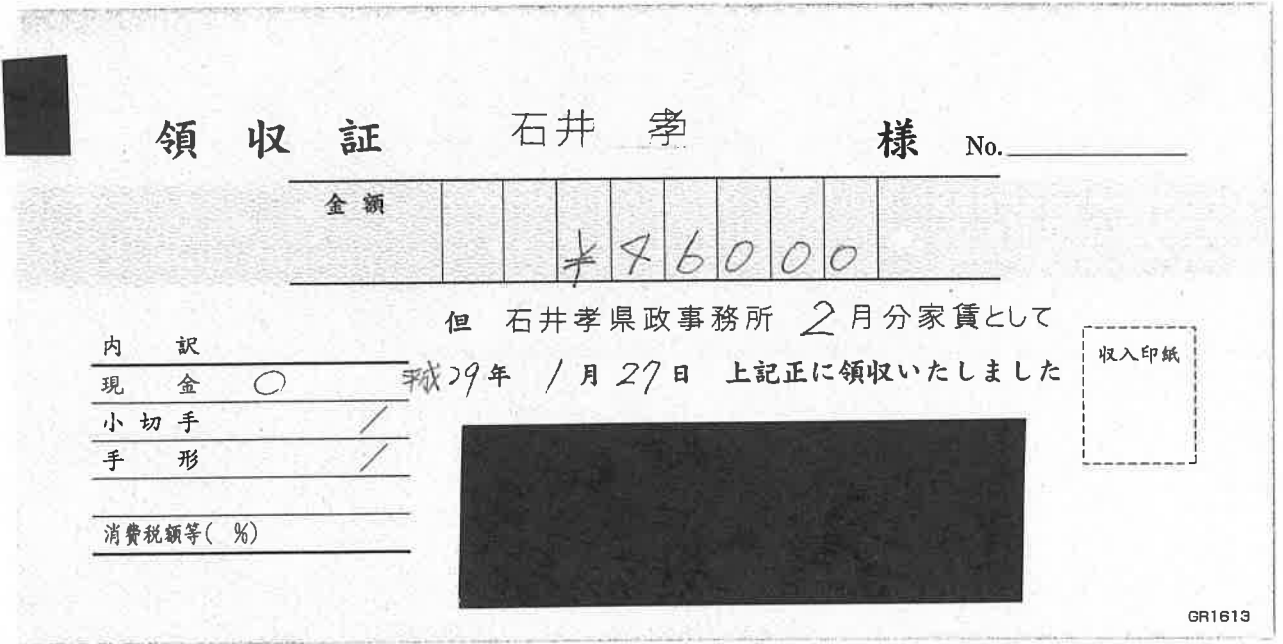 領収証 石井 孝 様 No.
金額 ¥46000
但 石井孝県政事務所 2月分家賃として
平成29年 1月27日 上記正に領収いたしました
収入印紙
内訳
現金 ○
小切手 /
手形 /
消費税額等( %)
GR1613